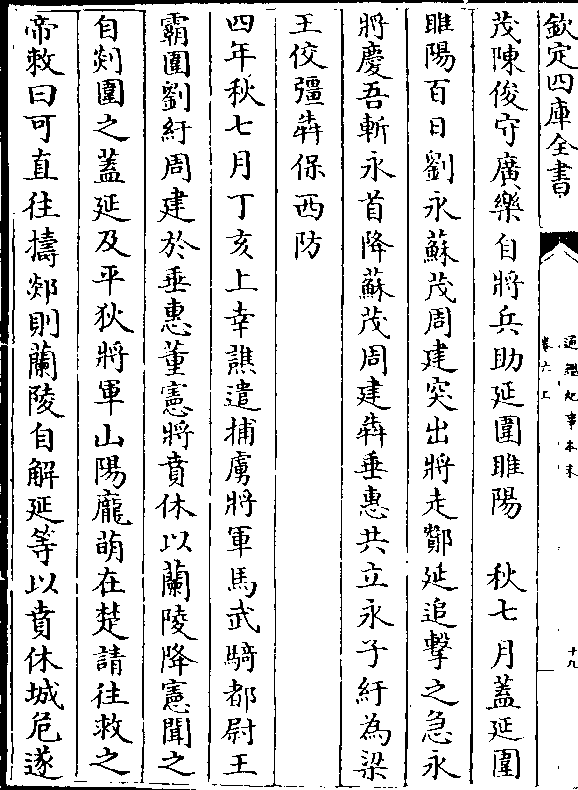 欽定四庫全書
通鑑紀事本末
卷六上
十九
茂陳俊守廣樂自將兵助延圍睢陽　秋七月蓋延圍
睢陽百日劉永蘇茂周建突出將走酇延追擊之急永
將慶吾斬永首降蘇茂周建犇垂惠共立永子紆為梁
王佼彊犇保西防
四年秋七月丁亥上幸譙遣捕虜將軍馬武騎都尉王
霸圍劉紆周建於垂惠董憲將賁休以蘭陵降憲聞之
自郯圍之蓋延及平狄將軍山陽龐萌在楚請往救之
帝敕曰可直往擣郯則蘭陵自解延等以賁休城危遂